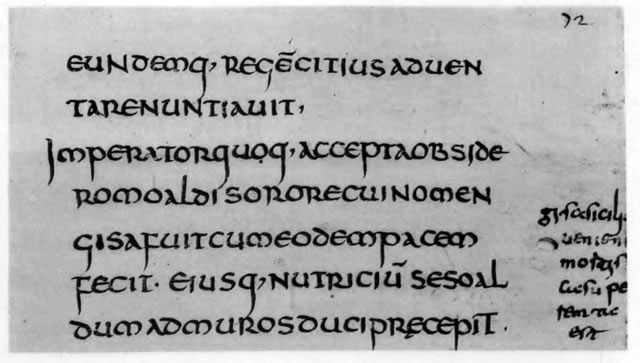 eundemq, regē citius aduen
tare nuntiauit,
Imperator quoq, accepta obside
romoaldi sorore cui nomen
gisa fuit cum eodem pacem
fecit. eiusq, nutriciū sesoal
dum ad muros duci pręcepit.
gisa sicili
uenien